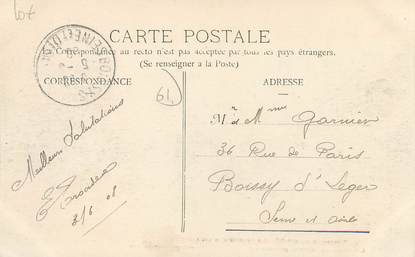 lot
CARTE POSTALE
La Correspondance au recto n'est pas acceptée par tous les pays étrangers.
(Se renseigner à la Poste)
CORRESPONDANCE
ADRESSE
61
Meilleures Salutations
3/6 08
M r et M me Garnier
36 Rue de Paris
Boissy d' Leger
Seine et Oise